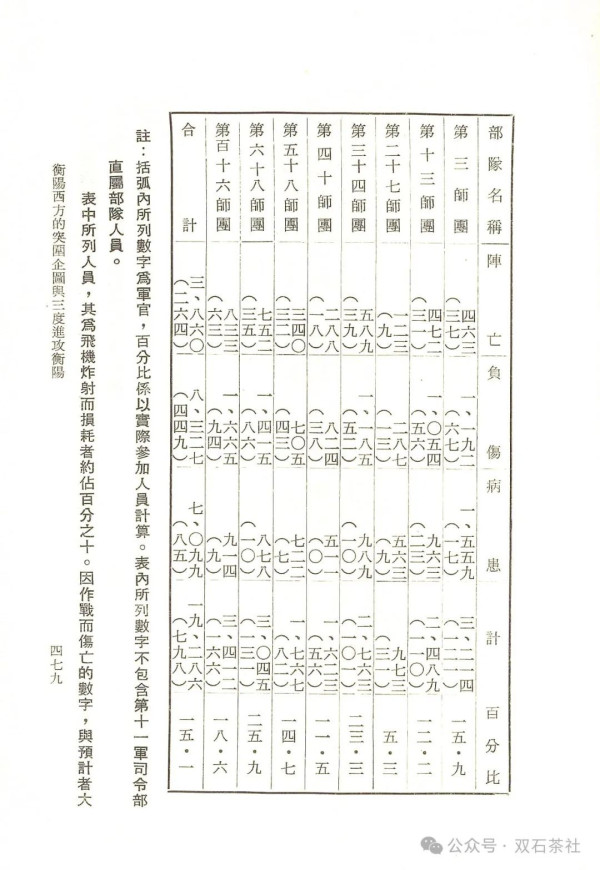 部隊名稱 陣亡 負傷 病患 計 百分比
第三師團 四六三(三七) 一、一九二(六七) 一、五五九(一七) 三、二一四(一二一) 一五・九
第十三師團 四七二(三一) 一、〇五四(五六) 九六三(二三) 二、四八九(一一〇) 一二・二
第二十七師團 一二三(九) 二八七(一三) 五六三(九) 九七三(三一) 五・三
第三十四師團 五八九(三九) 一、一八五(五二) 九八九(一〇) 二、七六三(一〇一) 二三・三
第四十師團 二八八(一八) 八二四(三八) 五一一(〇) 一、六二三(五六) 一一・五
第五十八師團 三四〇(三二) 七〇五(四三) 七二二(七) 一、七六七(八二) 一四・七
第六十八師團 七五二(三五) 一、四一五(八六) 八七八(一〇) 三、〇四五(一三一) 二五・九
第百十六師團 八三三(六三) 一、六六五(九四) 九一四(九) 三、四一二(一六六) 一八・六
合計 三、八六〇(二六四) 八、三二七(四四九) 七、〇九九(八五) 一九、二八六(七九八) 一五・一
註：括弧內所列數字為軍官，百分比係以實際參加人員計算。表內所列數字不包含第十一軍司令部
直屬部隊人員。
表中所列人員，其為飛機炸射而損耗者約佔百分之十。因作戰而傷亡的數字，與預計者大
衡陽西方的突圍企圖與三度進攻衡陽
四七九
公众号・双石茶社